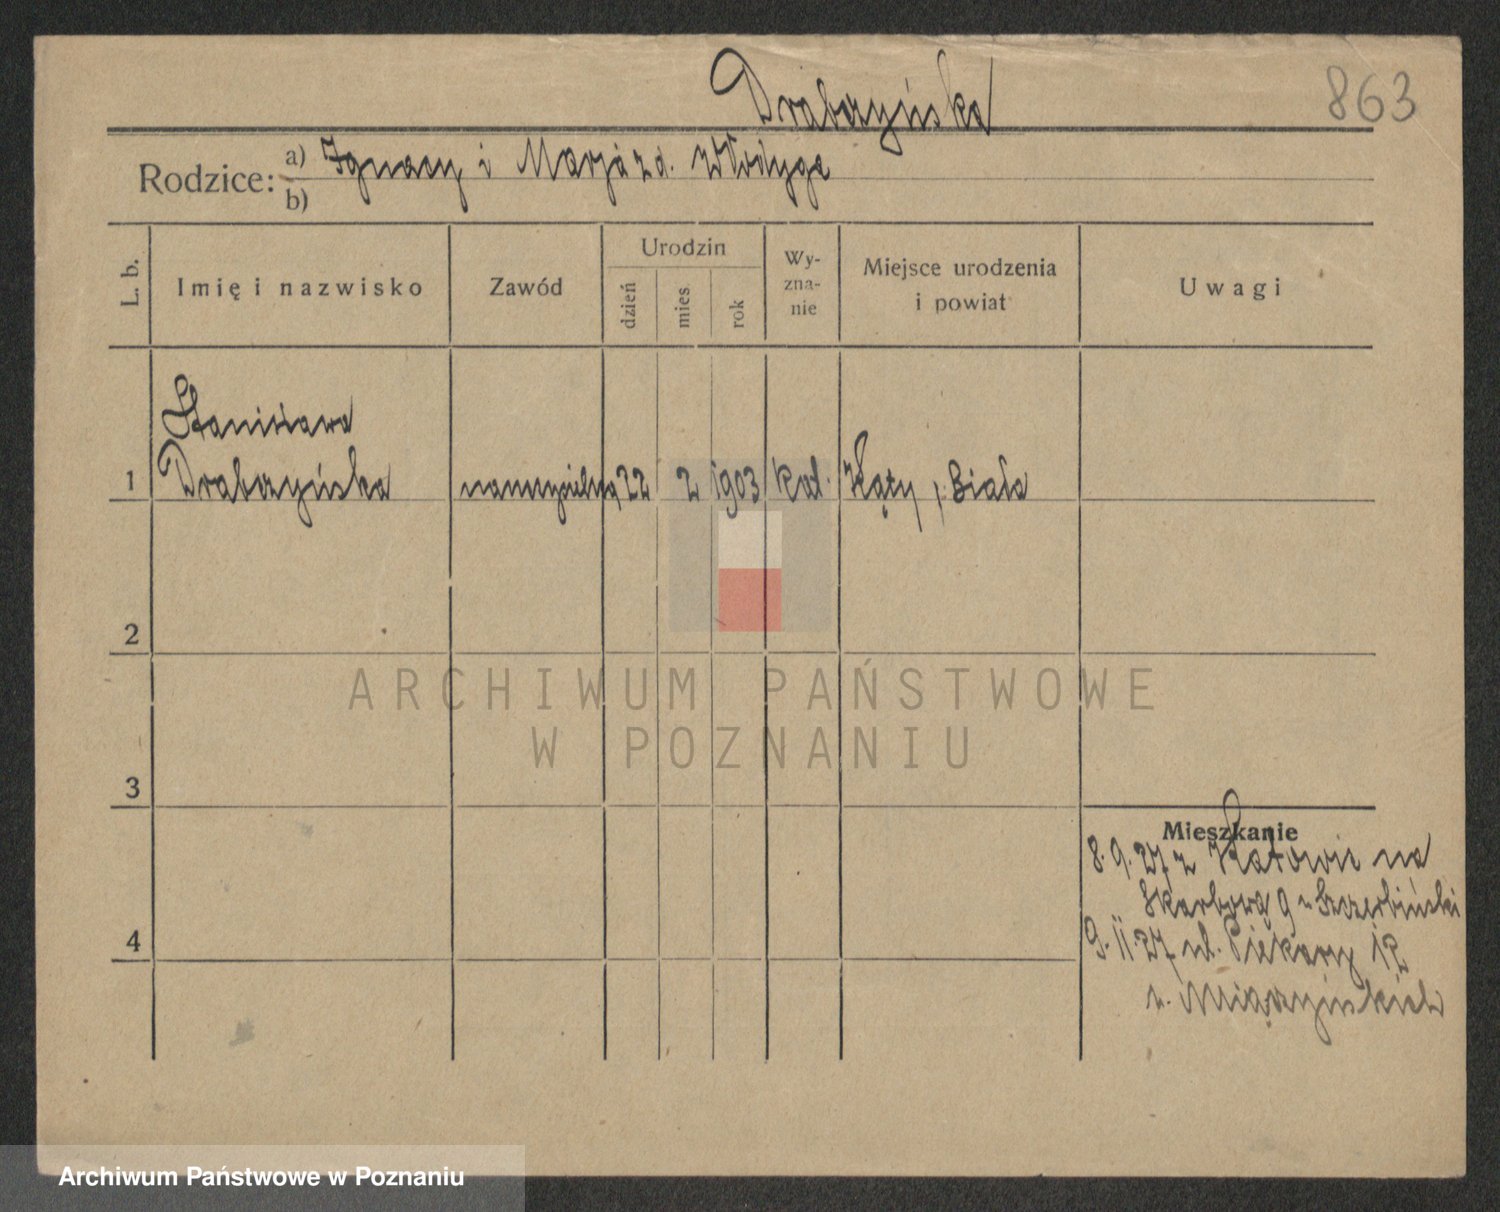 Drabczyńska
863
Rodzice: a) Ignacy i Marja z d. Włodyga
b)
L. b.
Imię i nazwisko
Zawód
Urodzin
dzień
mies
rok
Wy-
zna-
nie
Miejsce urodzenia
i powiat
Uwagi
Stanisława
1 Drabczyńska nauczycielka 22 2 1903 kat. Kąty, Biała
2
ARCHIWUM PAŃSTWOWE
W POZNANIU
3
Mieszkanie
8.9.27 z Katowic na
Skarbową 9 u Szczerbiński
4
9.11.27 ul. Piekary 12
u. Miączyńskich
Archiwum Państwowe w Poznaniu